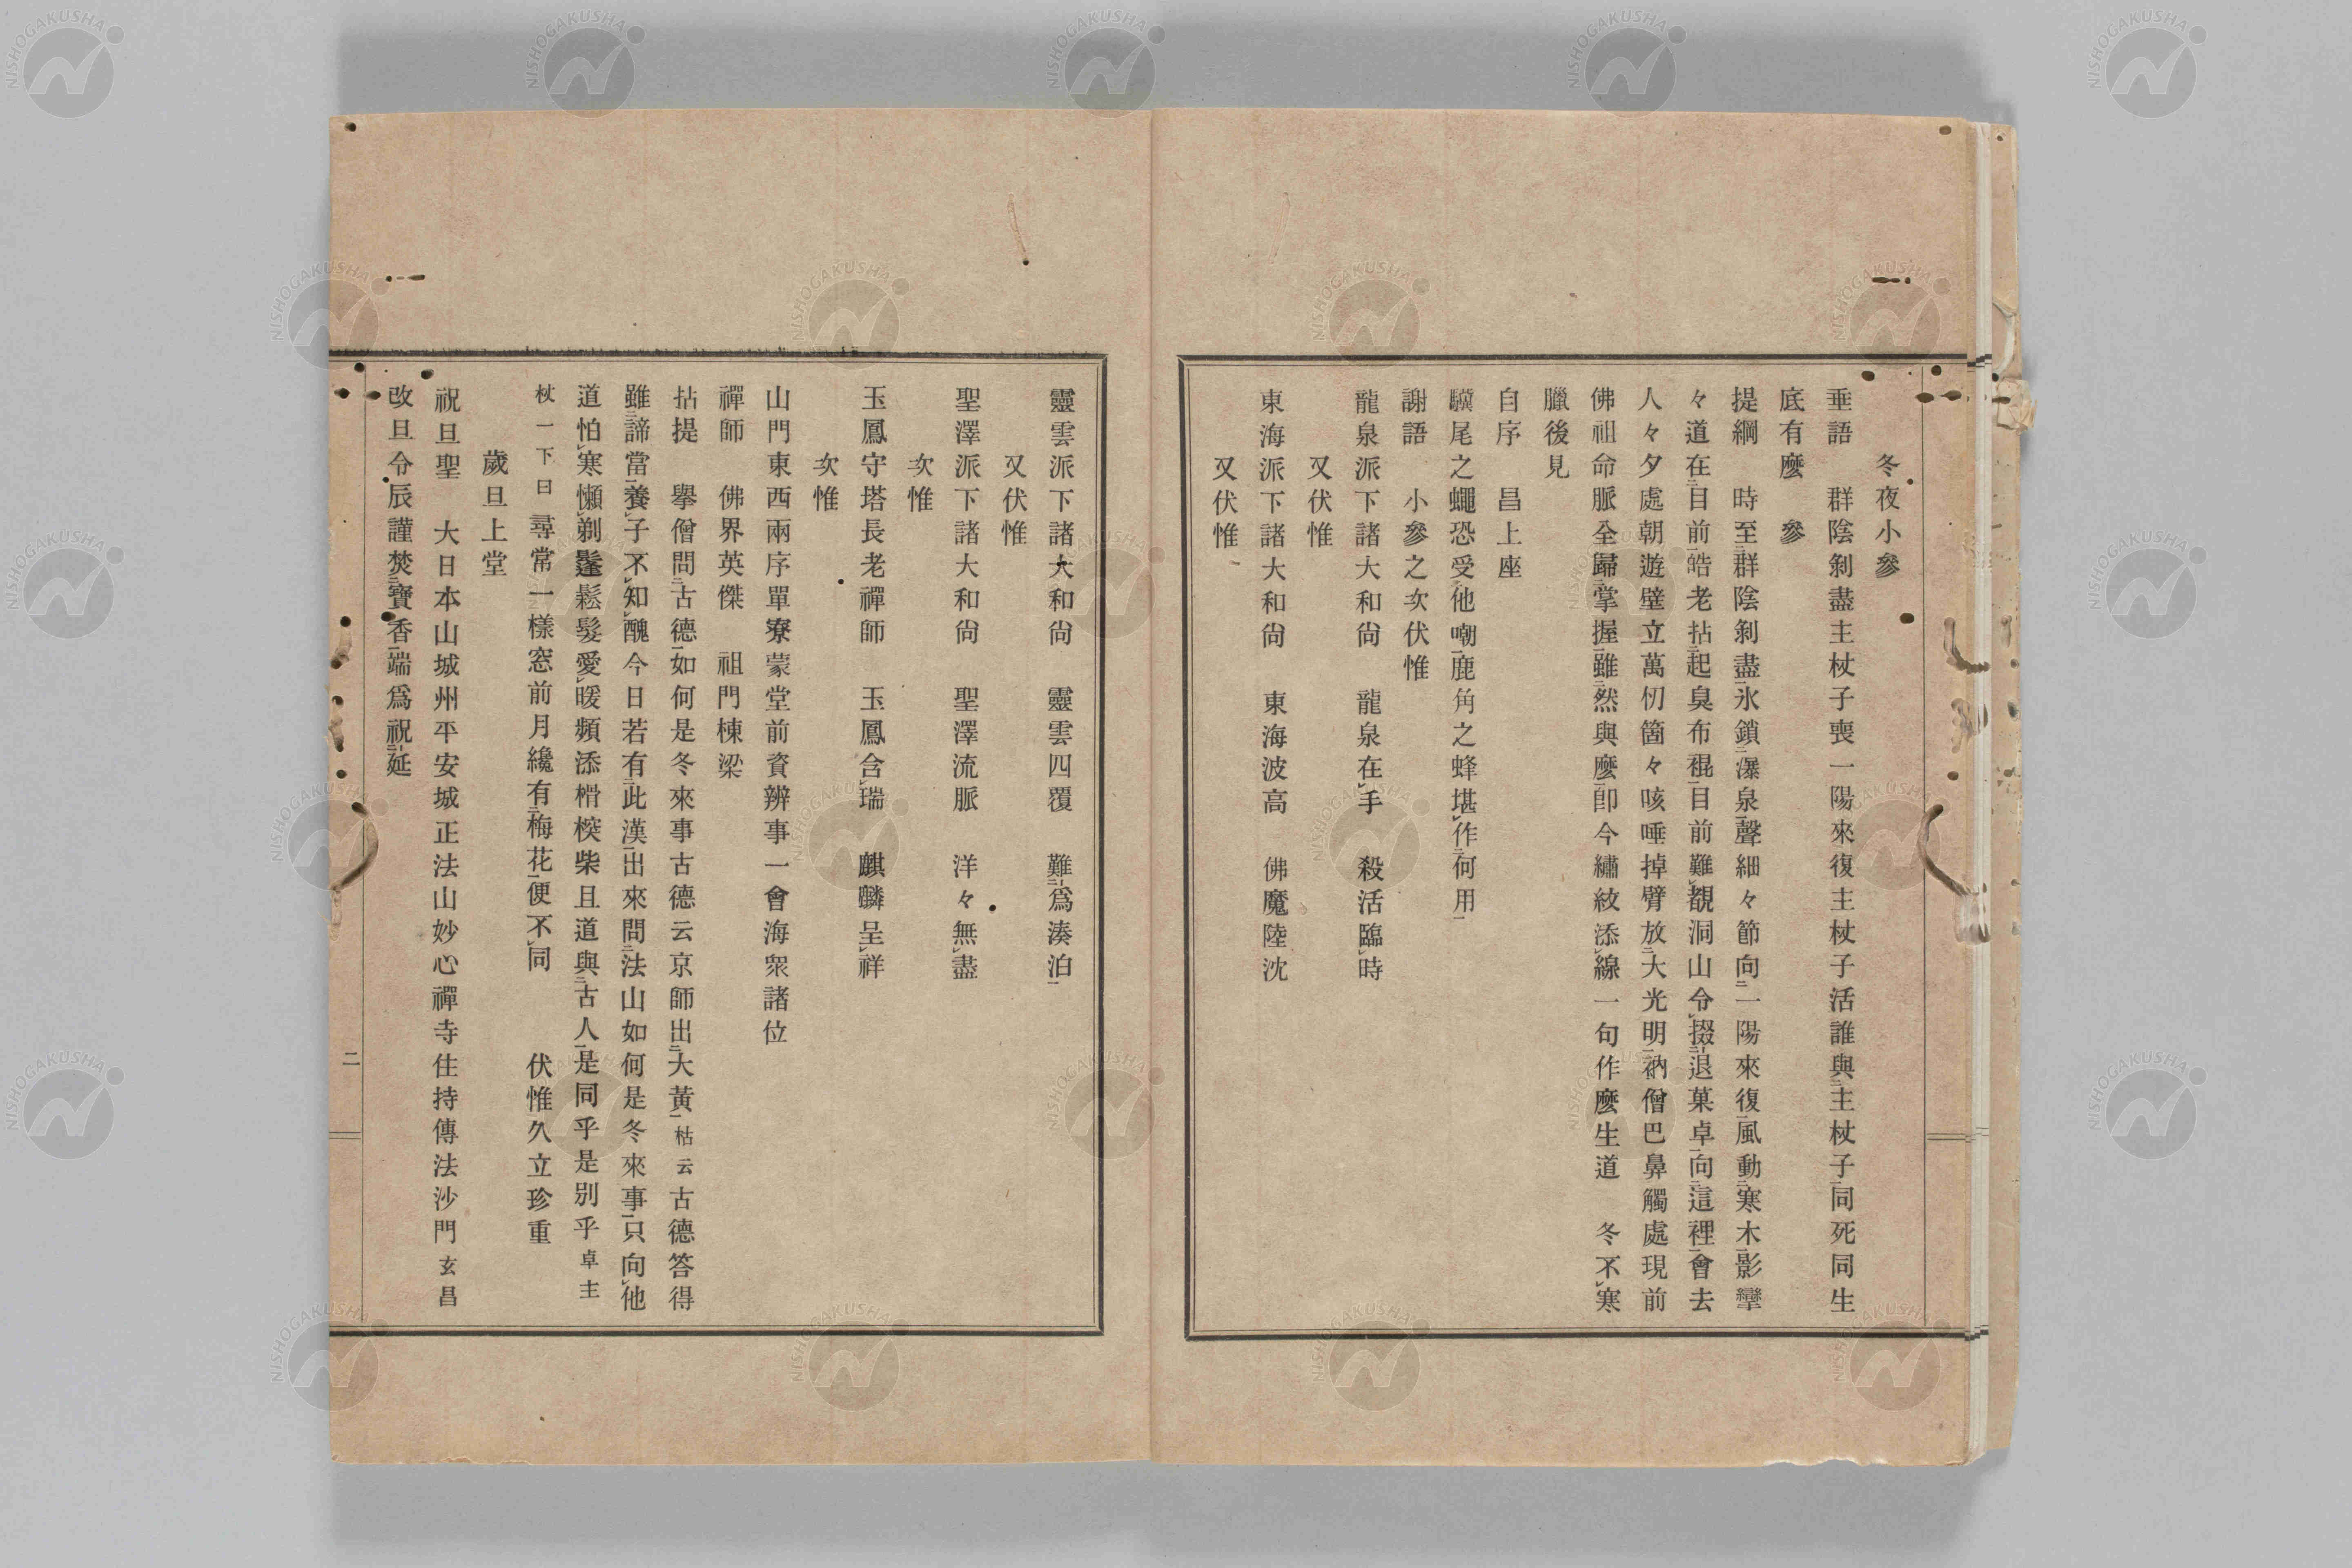 冬夜小參
垂語　群陰剝盡主杖子喪一陽來復主杖子活誰與二主杖子一同死同生
底有麼　參
提綱　時至群陰剝盡氷鎖二瀑泉一聲細々節向二一陽來復一風動二寒木一影攣
々道在二目前一皓老拈二起臭布裩一目前難レ覩洞山令レ掇二退菓卓一向二這裡一會去
人々夕處朝遊壁立萬仞箇々咳唾掉臂放二大光明一衲僧巴鼻觸處現前
佛祖命脈全歸二掌握一雖二然與麼一卽今繡紋添レ線一句作麼生道　冬不レ寒
臘後見
自序　昌上座
驥尾之蠅恐受二他嘲一鹿角之蜂堪レ作二何用一
謝語　小參之次伏惟
龍泉派下諸大和尙　龍泉在レ手　殺活臨レ時
又伏惟
東海派下諸大和尙　東海波高　佛魔陸沈
又伏惟
靈雲派下諸大和尙　靈雲四覆　難レ爲二湊泊一
又伏惟
聖澤派下諸大和尙　聖澤流脈　洋々無レ盡
次惟
玉鳳守塔長老禪師　玉鳳含レ瑞　麒麟呈レ祥
次惟
山門東西兩序單寮蒙堂前資辨事一會海衆諸位
禪師　佛界英傑　祖門棟梁
拈提　擧僧問二古德一如何是冬來事古德云京師出二大黃一枯云古德答得
雖二諦當一養レ子不レ知レ醜今日若有二此漢一出來問二法山如何是冬來事一只向レ他
道怕レ寒懶レ剃鬔鬆髮愛レ暖頻添榾柮柴且道與二古人一是同乎是別乎卓主
杖一下曰尋常一樣窓前月纔有二梅花一便不レ同　伏惟久立珍重
歲旦上堂
祝旦聖　大日本山城州平安城正法山妙心禪寺住持傳法沙門玄昌
改旦令辰謹焚二寶香一端爲祝二延
二
NISHOGAKUSHA